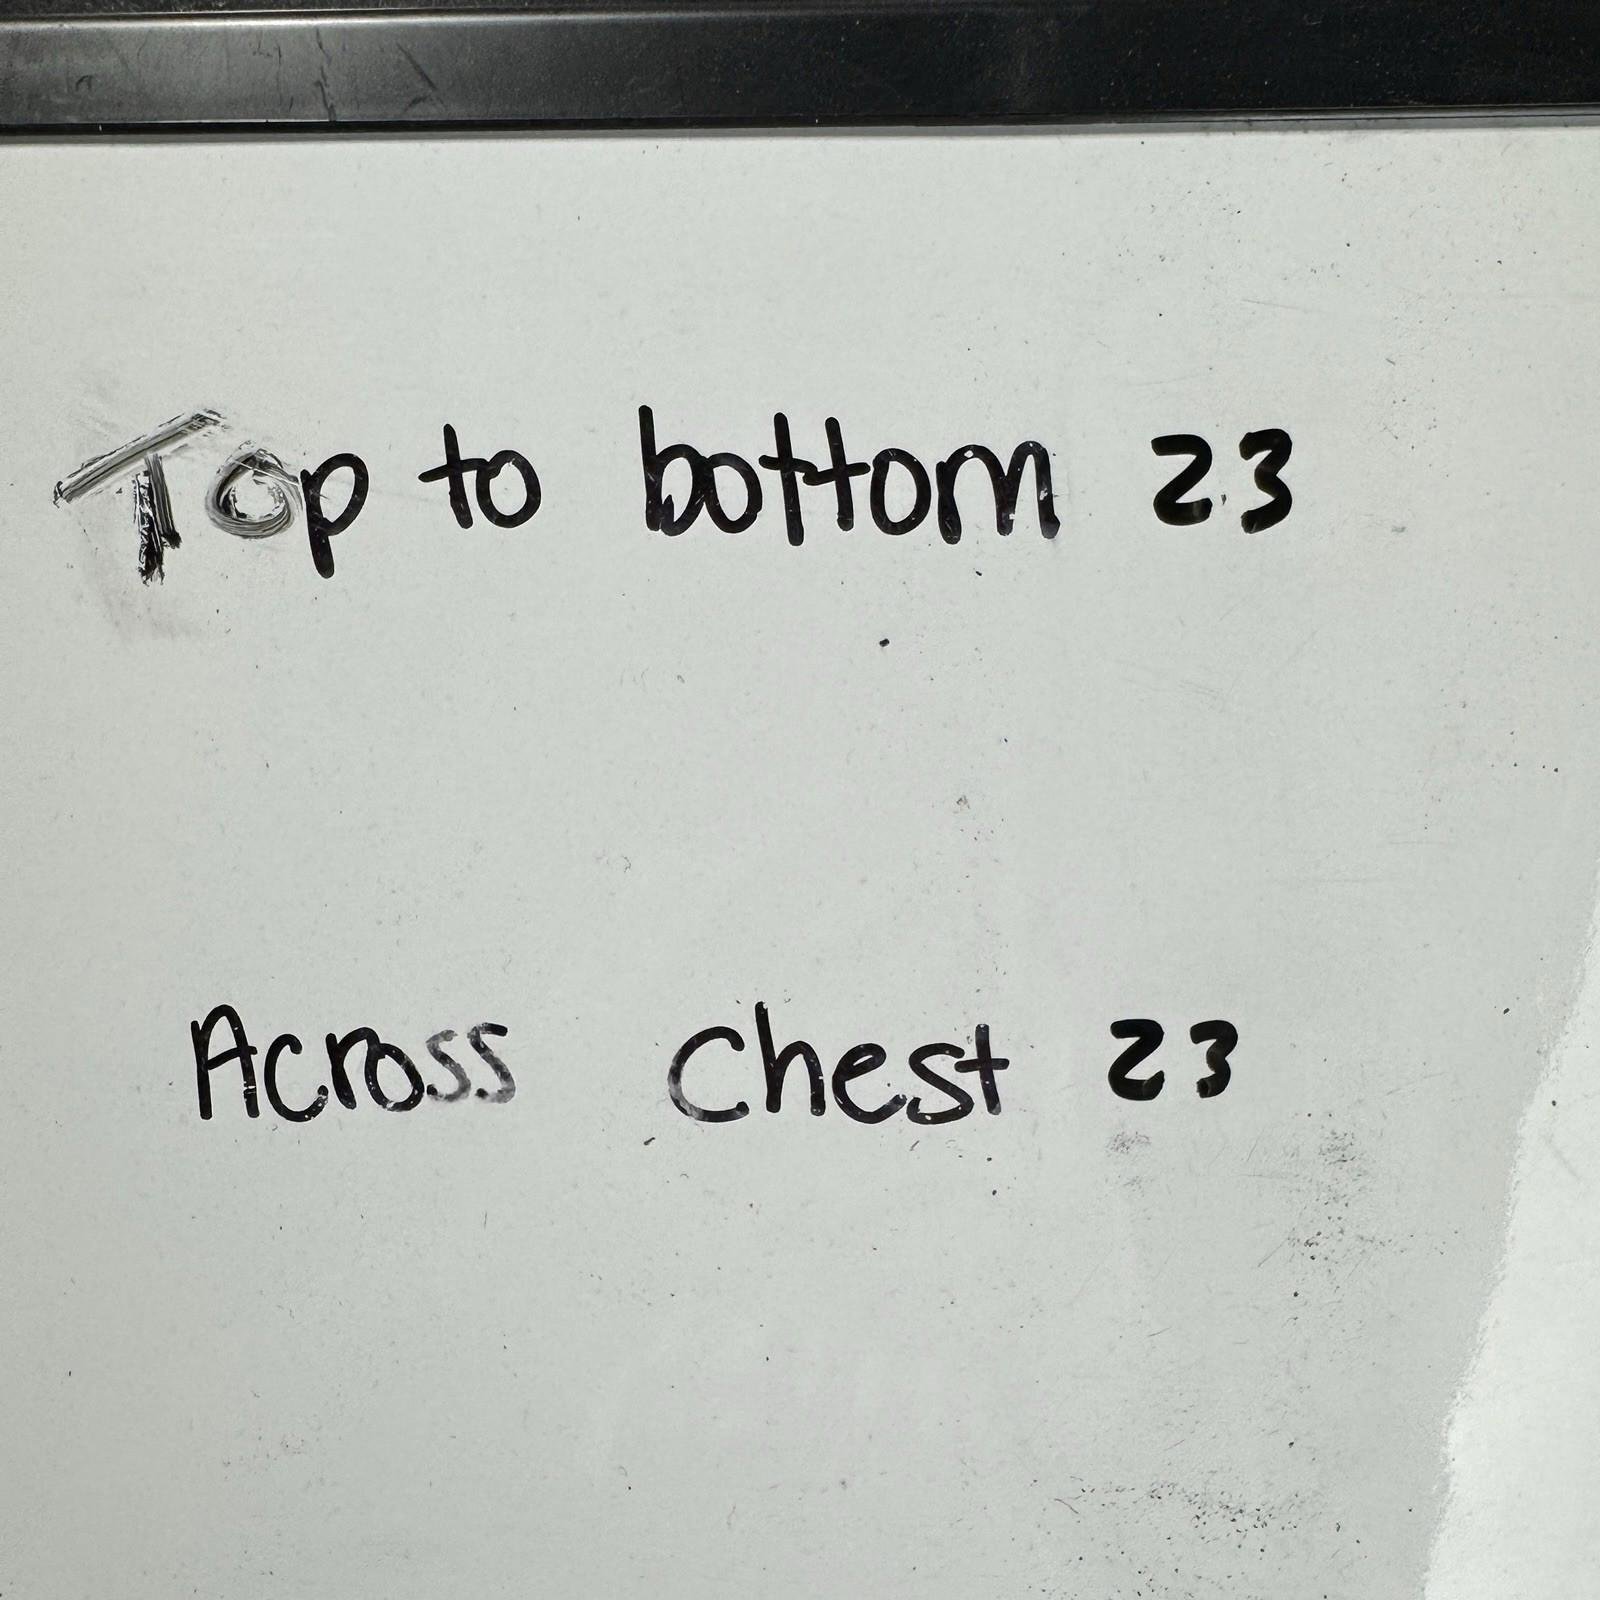 Top to bottom 23
Across Chest 23